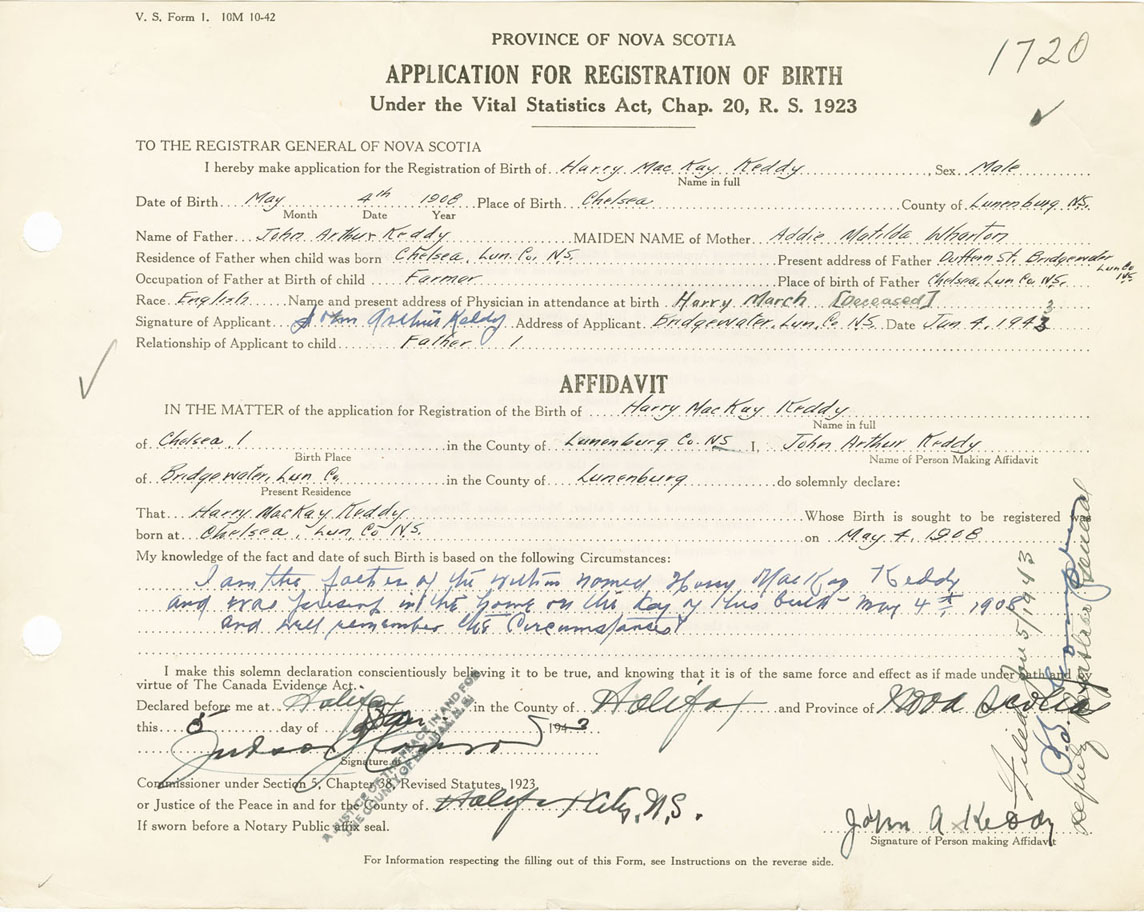 V. S. Form 1. 10M 10-42
1720
PROVINCE OF NOVA SCOTIA
APPLICATION FOR REGISTRATION OF BIRTH
Under the Vital Statistics Act, Chap. 20, R. S. 1923
TO THE REGISTRAR GENERAL OF NOVA SCOTIA
I hereby make application for the Registration of Birth of Harry MacKay Keddy, Sex Male
Name in full
Date of Birth May 4th 1908 Place of Birth Chelsea County of Lunenburg NS.
Month Date Year
Name of Father John Arthur Keddy MAIDEN NAME of Mother Addie Matilda Wharton
Residence of Father when child was born Chelsea, Lun. Co. N.S. Present address of Father Dufferin St. Bridgewater Lun Co NS.
Occupation of Father at Birth of child Farmer Place of birth of Father Chelsea, Lun Co. NS.
Race English Name and present address of Physician in attendance at birth Harry March [Deceased]
Signature of Applicant John Arthur Keddy Address of Applicant Bridgewater, Lun. Co N.S. Date Jan 4, 1943
Relationship of Applicant to child Father
AFFIDAVIT
IN THE MATTER of the application for Registration of the Birth of Harry MacKay Keddy
Name in full
of Chelsea, in the County of Lunenburg Co. NS I, John Arthur Keddy
Birth Place Name of Person Making Affidavit
of Bridgewater, Lun Co. in the County of Lunenburg do solemnly declare:
Present Residence
That Harry MacKay Keddy Whose Birth is sought to be registered was
born at Chelsea, Lun, Co N.S. on May 4, 1908
My knowledge of the fact and date of such Birth is based on the following Circumstances:
I am the father of the within named Harry MacKay Keddy
and was present in the home on the day of this birth May 4th, 1908
and well remember the Circumstances
I make this solemn declaration conscientiously believing it to be true, and knowing that it is of the same force and effect as if made under oath and
virtue of The Canada Evidence Act.
Declared before me at Halifax in the County of Halifax and Province of Nova Scotia
this 5 day of Jan 1943
Signature of
A JUSTICE OF THE PEACE IN AND FOR
THE COUNTY OF
Commissioner under Section 5, Chapter 38, Revised Statutes, 1923
or Justice of the Peace in and for the County of Halifax City, N.S.
If sworn before a Notary Public affix seal.
John A Keddy
Signature of Person making Affidavit
For Information respecting the filling out of this Form, see Instructions on the reverse side.
Filed Jan 5/1943
Deputy Registrar General